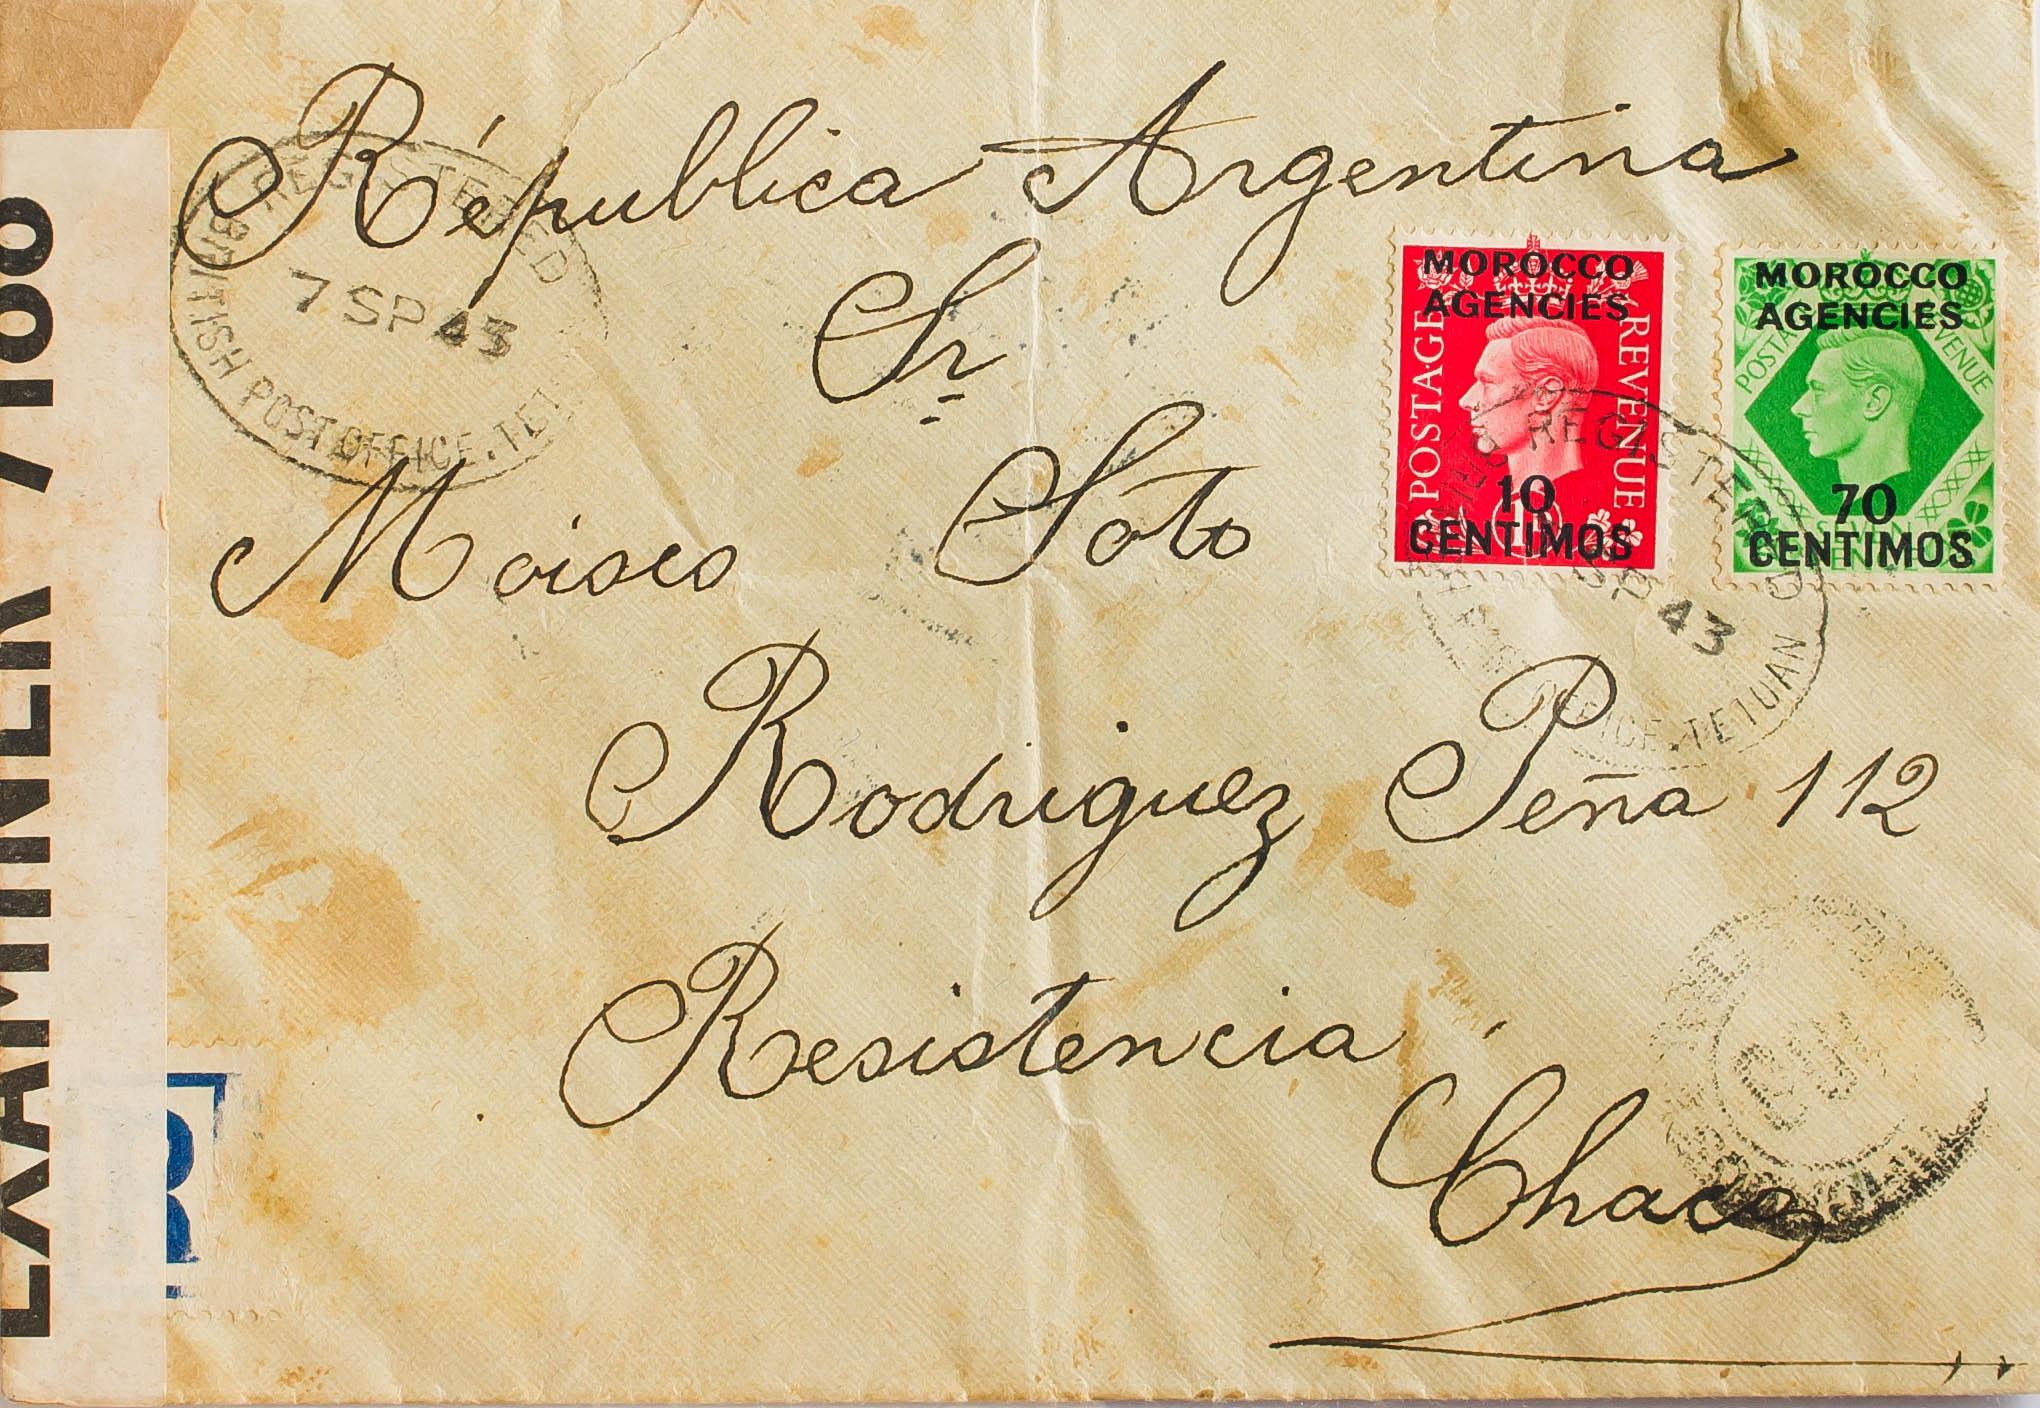 Républica Argentina
Sr
Moises Soto
Rodriguez Peña 112
Resistencia
Chaco
REGISTERED
7 SP 43
BRITISH POST OFFICE.
MOROCCO
AGENCIES
POSTAGE
REVENUE
10
CENTIMOS
MOROCCO
AGENCIES
70
CENTIMOS
REGISTERED
SP 43
TETUAN
EXAMINER 7188
R